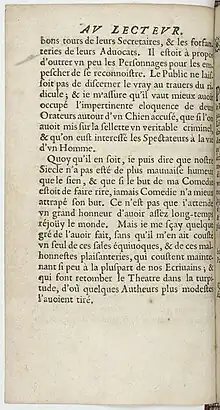 AV LECTEVR.
bons tours de leurs Secretaires, & les forfan-
teries de leurs Aduocats. Il estoit à propos
d'outrer vn peu les Personnages pour les em-
pescher de se reconnoistre. Le Public ne lais-
soit pas de discerner le vray au trauers du ri-
dicule; & ie m'assure qu'il vaut mieux auoir
occupé l'impertinente eloquence de deux
Orateurs autour d'vn Chien accusé, que si l'on
auoit mis sur la sellette vn veritable criminel,
& qu'on eust interessé les Spectateurs à la vie
d'vn Homme.
Quoy qu'il en soit, ie puis dire que nostre
Siecle n'a pas esté de plus mauuaise humeur
que le sien, & que si le but de ma Comedie
estoit de faire rire, iamais Comedie n'a mieux
attrapé son but. Ce n'est pas que i'attende
vn grand honneur d'auoir assez long-temps
réjoüy le monde. Mais ie me sçay quelque
gré de l'auoir fait, sans qu'il m'en ait cousté
vn seul de ces sales équiuoques, & de ces mal-
honnestes plaisanteries, qui coustent mainte-
nant si peu à la pluspart de nos Ecriuains; &
qui font retomber le Theatre dans la turpi-
tude, d'où quelques Autheurs plus modestes
l'auoient tiré.